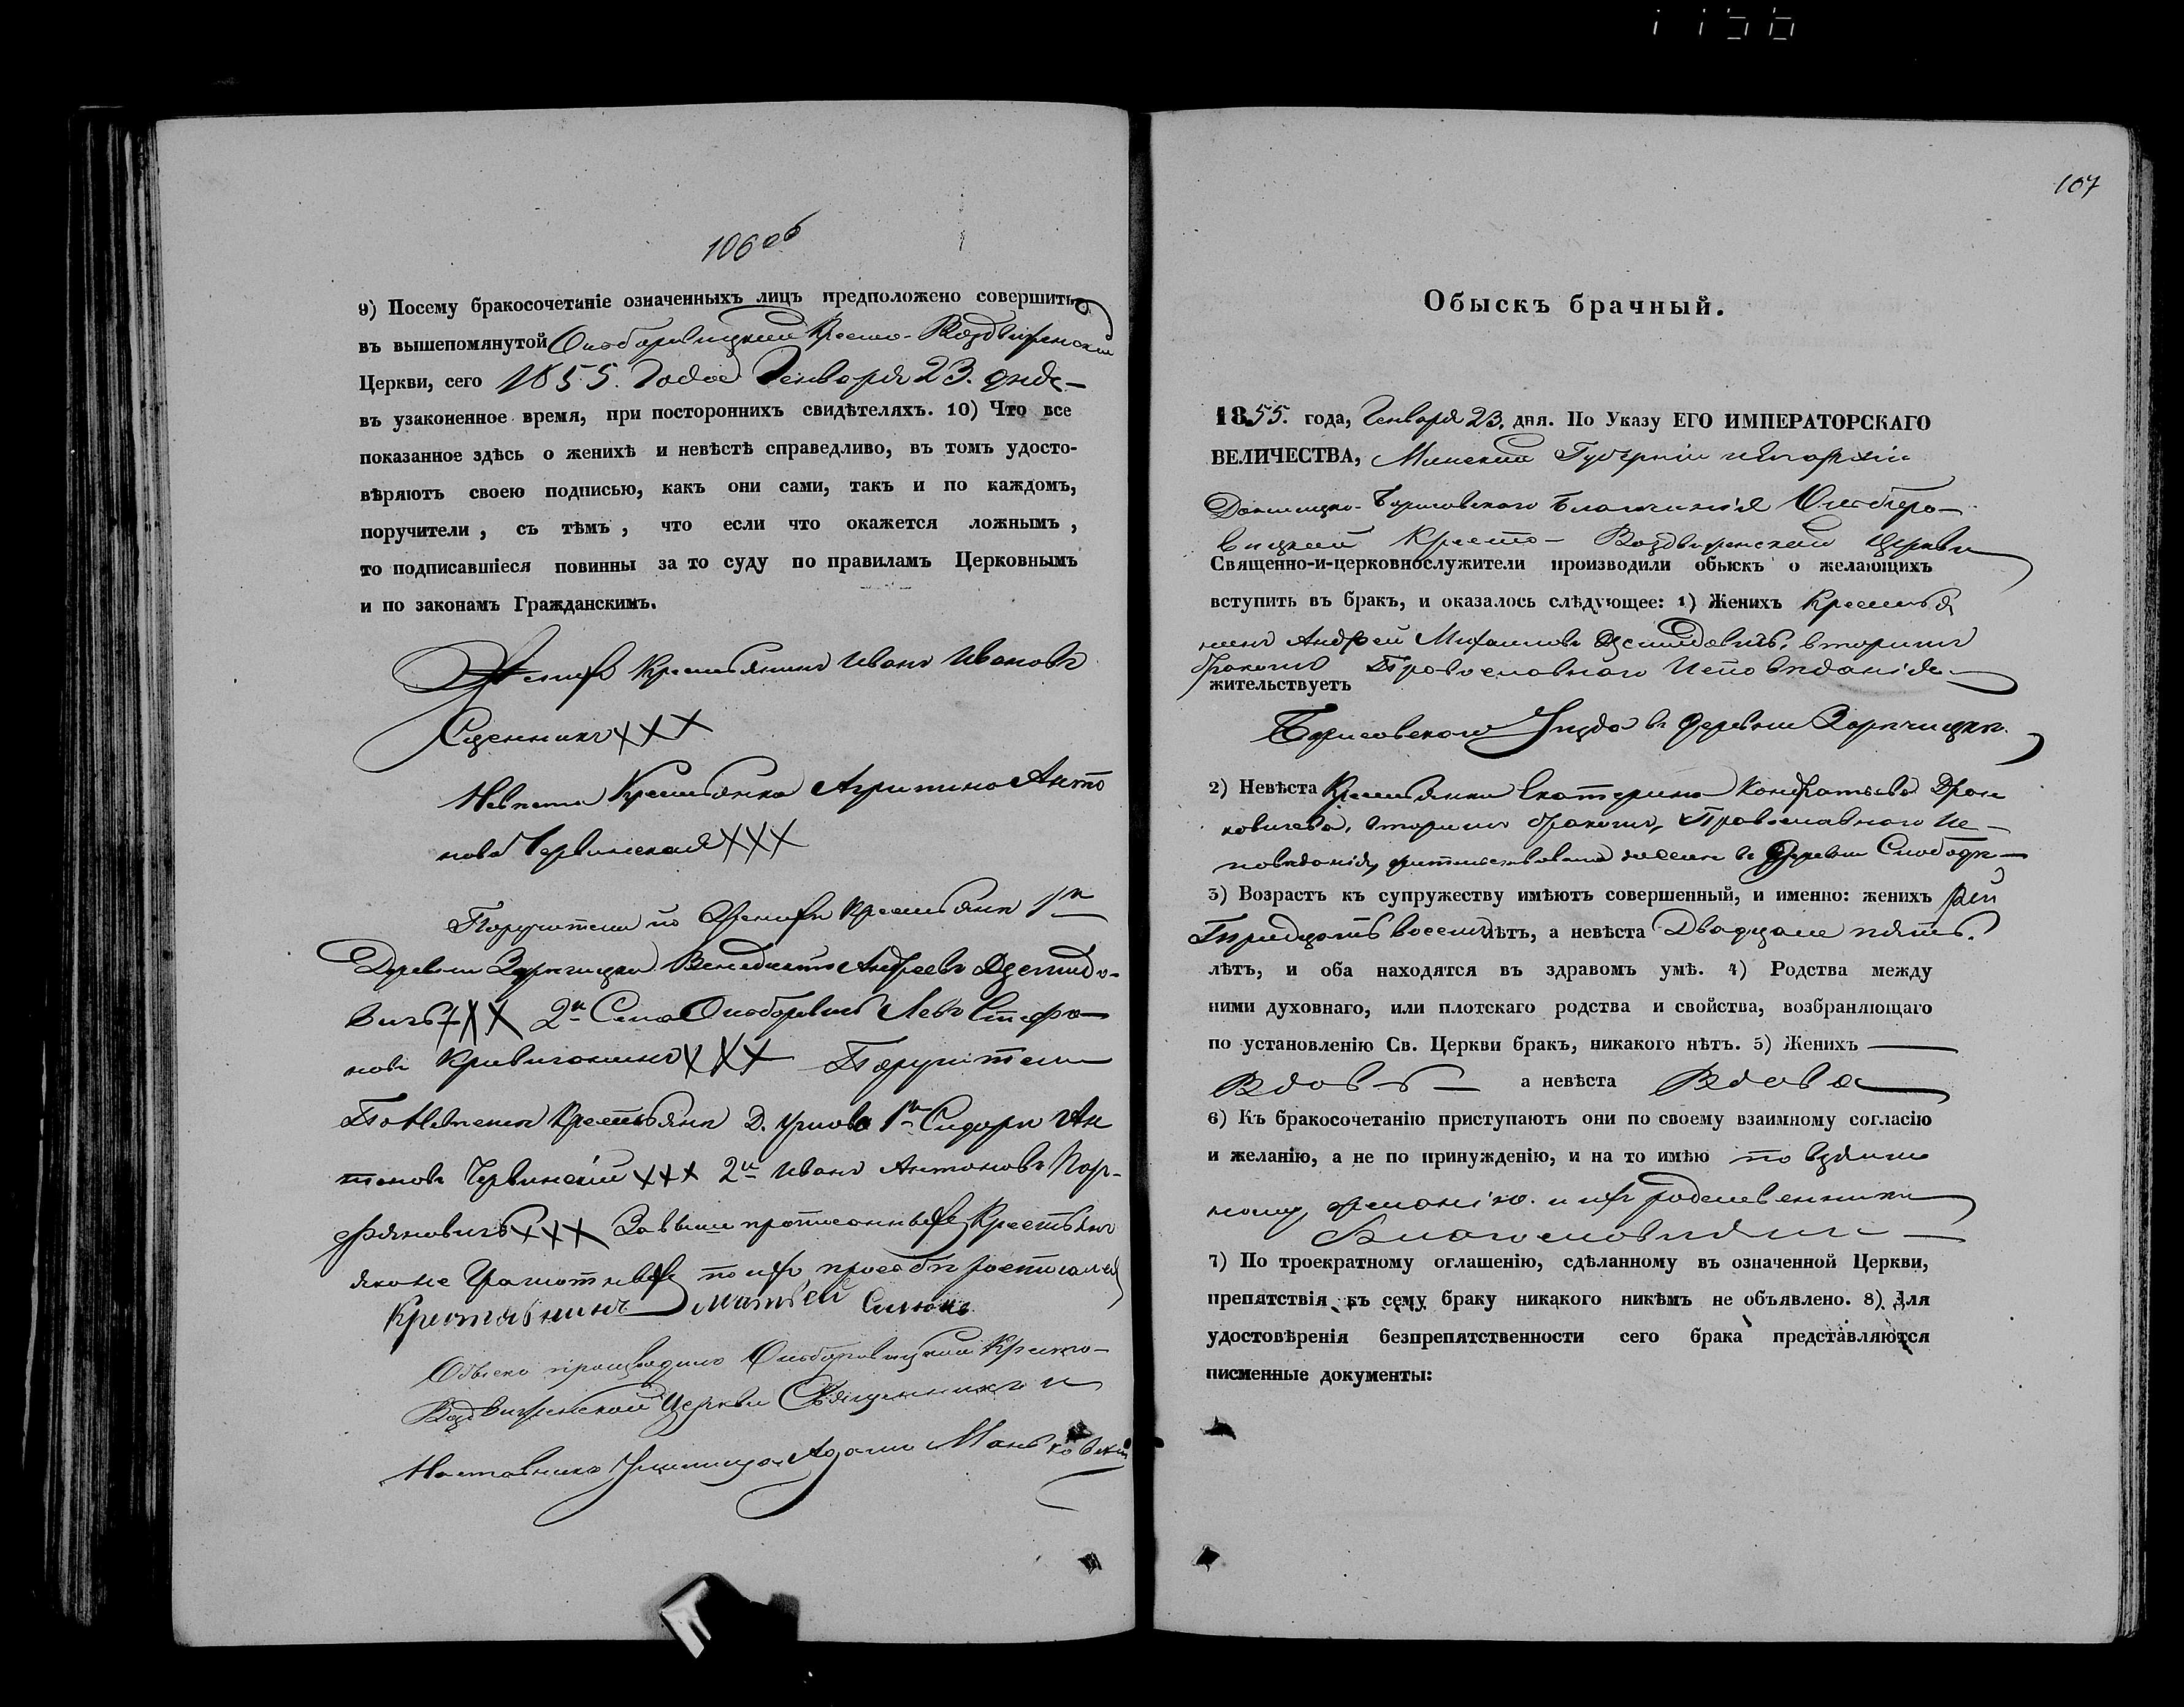 106 об
9) Посему бракосочетаніе означенныхъ лицъ предположено совершить
въ вышепомянутой Кресто-Воздвиженской
Церкви, сего 1855. Года Генваря 23. дня
въ узаконенное время, при постороннихъ свидѣтеляхъ. 10) Что все
показанное здѣсь о женихѣ и невѣстѣ справедливо, въ томъ удосто-
вѣряютъ своею подписью, какъ они сами, такъ и по каждомъ,
поручители, съ тѣмъ, что если что окажется ложнымъ,
то подписавшіеся повинны за то суду по правиламъ Церковнымъ
и по законамъ Гражданскимъ.
Женихъ Крестьянинъ Иванъ Ивановъ
ХХХ
Невѣста Крестьянка Агрипина Анто
нова Червинская ХХХ
Поручители по Женихѣ Крестьяне 1й
Деревни Венедиктъ Андреевъ
ХХХ 2й Села Левъ Стефа-
новъ ХХХ Поручители
По Невѣстѣ Крестьяне Д. 1й Сидоръ Ан
тоновъ Червинскій ХХХ 2й Иванъ Антоновъ Пор-
фяновичъ ХХХ За выше прописанныхъ Крестьянъ
яко не Грамотныхъ по ихъ прозбѣ росписался
Крестьянинъ Матвей
Обыскъ производилъ Кресто-
Воздвиженской Церкви Священникъ и
Наставникъ Училища Адамъ Маньковскій
107
Обыскъ брачный.
1855. года, Генваря 23. дня. По Указу ЕГО ИМПЕРАТОРСКАГО
ВЕЛИЧЕСТВА, Минской Губерніи и Епархіи
Докшицко-Борисовского Благочинія
вицкой Кресто-Воздвиженской Церкви
Священно-и-церковнослужители производили обыскъ о желающихъ
вступить въ бракъ, и оказалось слѣдующее: 1) Женихъ Крестья
нинъ Андрей Михаиловъ вторымъ
бракомъ Православнаго Исповѣданія
жительствуетъ
Борисовского Уѣзда въ деревни
2) Невѣста Крестьянка Екатерина Кондратьева
вторымъ бракомъ, Православнаго Ис-
повѣданія, жительствовала въ Деревни Слободѣ
3) Возрастъ къ супружеству имѣютъ совершенный, и именно: женихъ
Тридцать восемь лѣтъ, а невѣста Двадцать пять.
лѣтъ, и оба находятся въ здравомъ умѣ. 4) Родства между
ними духовнаго, или плотскаго родства и свойства, возбраняющаго
по установленію Св. Церкви бракъ, никакого нѣтъ. 5) Женихъ
Вдовъ а невѣста Вдова
6) Къ бракосочетанію приступаютъ они по своему взаимному согласію
и желанію, а не по принужденію, и на то имѣю по взаим
ному желанію. и ихъ родственники
7) По троекратному оглашенію, сдѣланному въ означенной Церкви,
препятствія къ сему браку никакого никѣмъ не объявлено. 8) Для
удостовѣренія безпрепятственности сего брака представляются
писменные документы: